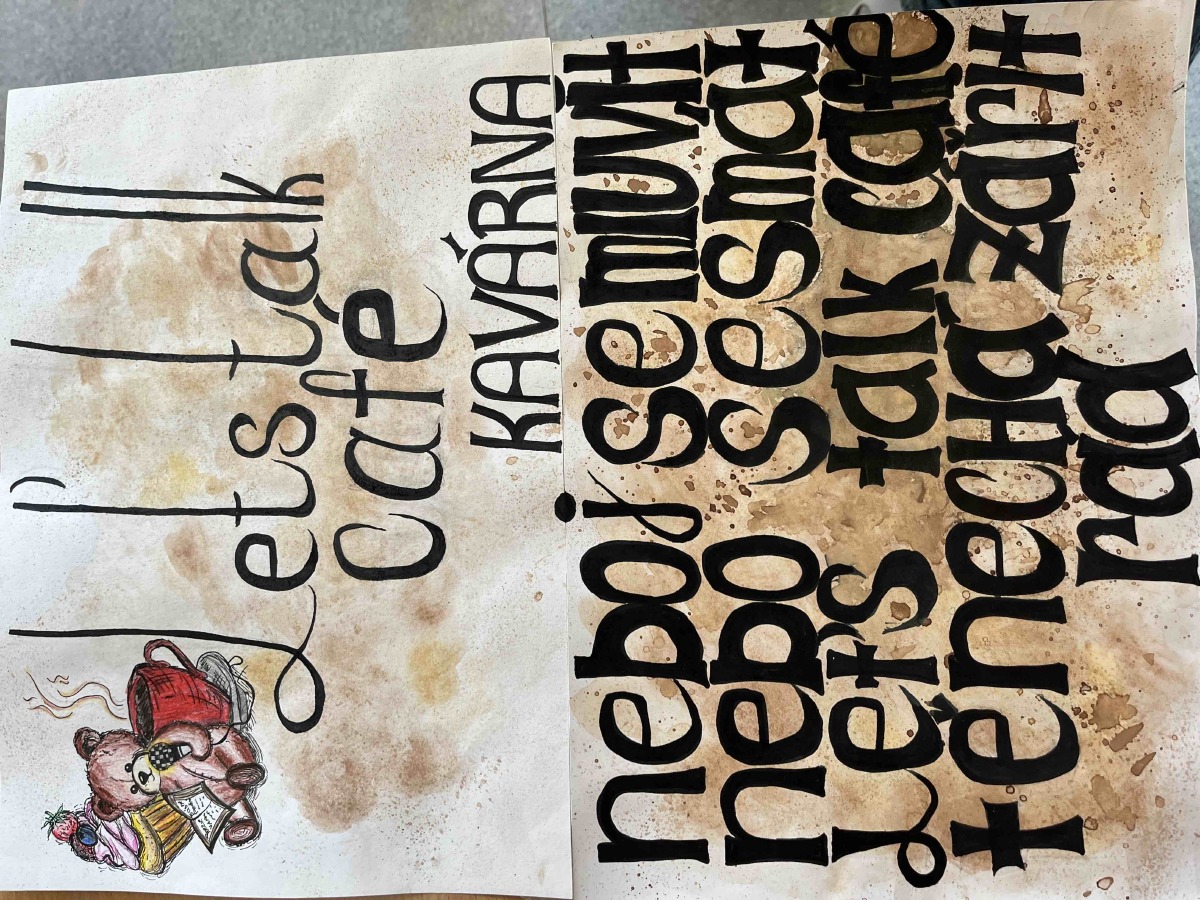 let's talk
café
KAVÁRNA
neboj se mluvit
nebo se smát
let's talk café
tě nechá zářit
rád